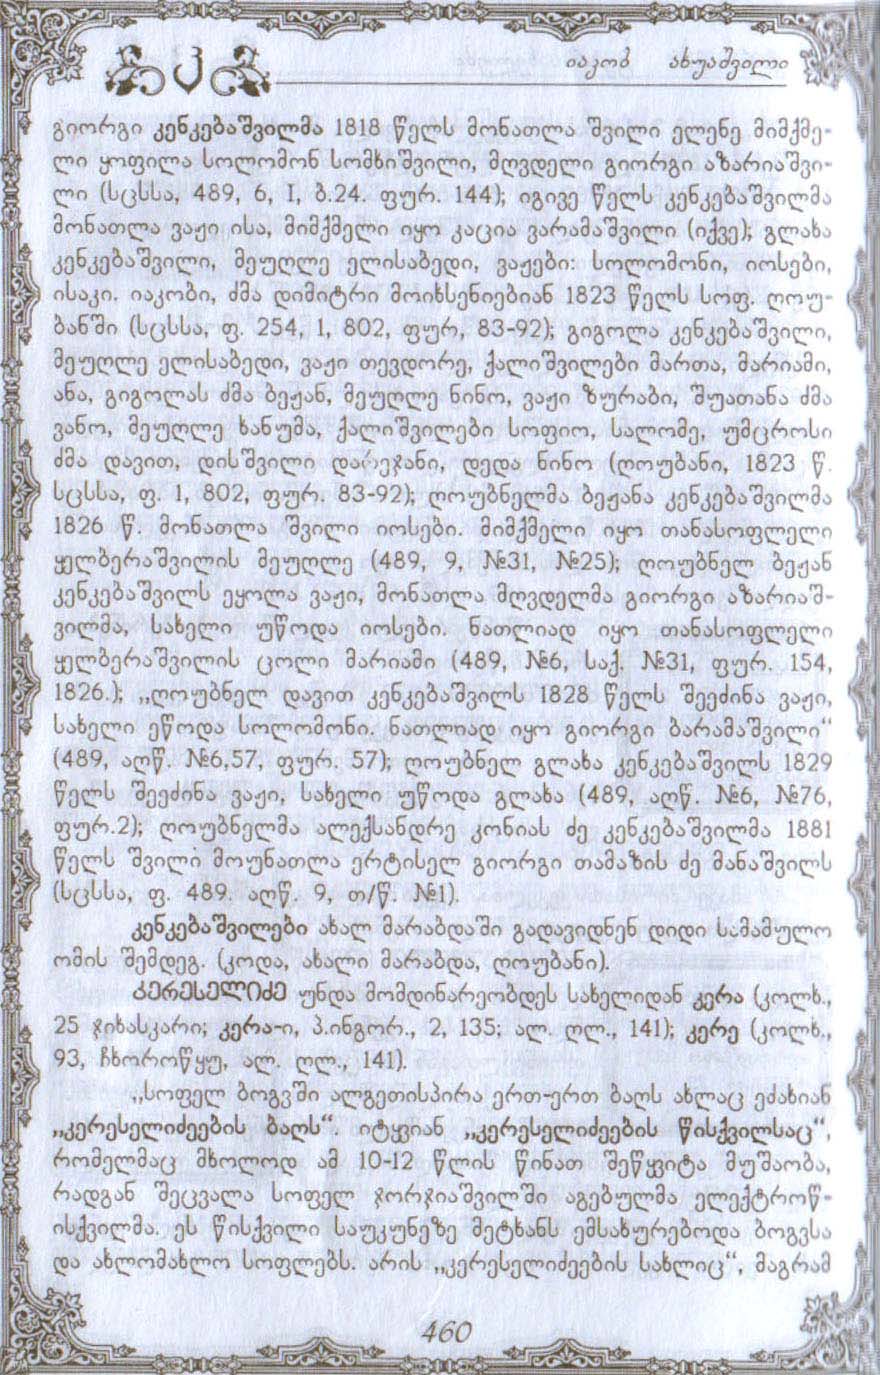 კ
იაკობ ახუაშვილი
გიორგი კენკებაშვილმა 1818 წელს მონათლა შვილი ელენე მიმქმე-
ლი ყოფილა სოლომონ სომხიშვილი, მღვდელი გიორგი აზარიაშვი-
ლი (სცსსა, 489, 6, I, ბ.24. ფურ. 144); იგივე წელს კენკებაშვილმა
მონათლა ვაჟი ისა, მიმქმელი იყო კაცია ვარამაშვილი (იქვე); გლახა
კენკებაშვილი, მეუღლე ელისაბედი, ვაჟები: სოლომონი, იოსები,
ისაკი. იაკობი, ძმა დიმიტრი მოიხსენიებიან 1823 წელს სოფ. ღოუ-
ბანში (სცსსა, ფ. 254, 1, 802, ფურ, 83-92); გიგოლა კენკებაშვილი,
მეუღლე ელისაბედი, ვაჟი თევდორე, ქალიშვილები მართა, მარიამი,
ანა, გიგოლას ძმა ბეჟან, მეუღლე ნინო, ვაჟი ზურაბი, შუათანა ძმა
ვანო, მეუღლე ხანუმა, ქალიშვილები სოფიო, სალომე, უმცროსი
ძმა დავით, დისშვილი დარეჯანი, დედა ნინო (ღოუბანი, 1823 წ.
სცსსა, ფ. 1, 802, ფურ, 83-92); ღოუბნელმა ბეჟანა კენკებაშვილმა
1826 წ. მონათლა შვილი იოსები. მიმქმელი იყო თანასოფლელი
ყელბერაშვილის მეუღლე (489, 9, №31, №25); ღოუბნელ ბეჟან
კენკებაშვილს ეყოლა ვაჟი, მონათლა მღვდელმა გიორგი აზარიაშ-
ვილმა, სახელი უწოდა იოსები. ნათლიად იყო თანასოფლელი
ყელბერაშვილის ცოლი მარიამი (489, №6, საქ. №31, ფურ. 154,
1826.); „ღოუბნელ დავით კენკებაშვილს 1828 წელს შეეძინა ვაჟი,
სახელი ეწოდა სოლომონი. ნათლიად იყო გიორგი ბარამაშვილი“
(489, აღწ. №6,57, ფურ. 57); ღოუბნელ გლახა კენკებაშვილს 1829
წელს შეეძინა ვაჟი, სახელი უწოდა გლახა (489, აღწ. №6, №76,
ფურ.2); ღოუბნელმა ალექსანდრე კონიას ძე კენკებაშვილმა 1881
წელს შვილი მოუნათლა ერტისელ გიორგი თამაზის ძე მანაშვილს
(სცსსა, ფ. 489. აღწ. 9, თ/წ. №1).
კენკებაშვილები ახალ მარაბდაში გადავიდნენ დიდი სამამულო
ომის შემდეგ. (კოდა, ახალი მარაბდა, ღოუბანი).
კერესელიძე უნდა მომდინარეობდეს სახელიდან კერა (კოლხ.,
25 ჯიხასკარი; კერა-ი, პ.ინგორ., 2, 135; ალ. ღლ., 141); კერე (კოლხ.,
93, ჩხოროწყუ, ალ. ღლ., 141).
„სოფელ ბოგვში ალგეთისპირა ერთ-ერთ ბაღს ახლაც ეძახიან
„კერესელიძეების ბაღს“. იტყვიან „კერესელიძეების წისქვილსაც“,
რომელმაც მხოლოდ ამ 10-12 წლის წინათ შეწყვიტა მუშაობა,
რადგან შეცვალა სოფელ ჯორჯიაშვილში აგებულმა ელექტროწ-
ისქვილმა. ეს წისქვილი საუკუნეზე მეტხანს ემსახურებოდა ბოგვსა
და ახლომახლო სოფლებს. არის „კერესელიძეების სახლიც“, მაგრამ
460